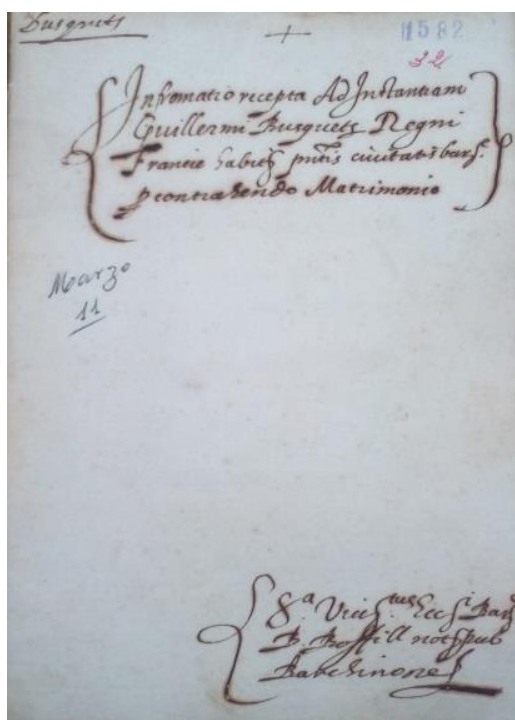 Busquets
1582
32
Informatio recepta Ad Instantiam
Guillermi Busquets Regni
Francie habit pntis ciuitatis barᵉ
p contrahendo Matrimonio
Marzo
11
Bar
not pub
Barchinone